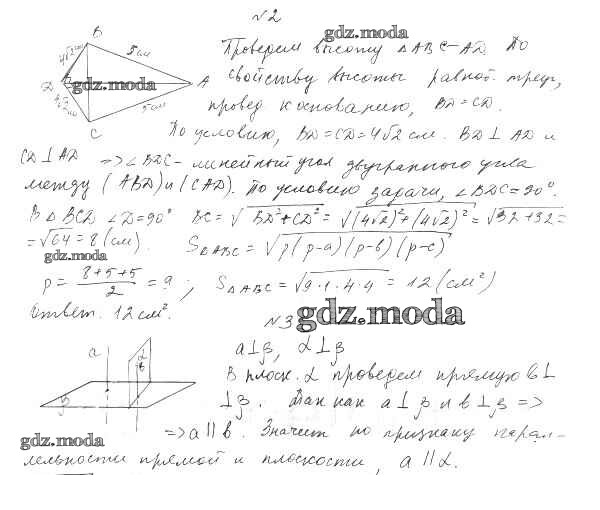 N2
gdz.moda
B
4√2 см
5 см
Проведем высоту △ABC – AD. По
D
gdz.moda
A
свойству высоты равноб. треуг,
4√2
5 см
провед к основанию, BD = CD.
C
По условию, BD = CD = 4√2 см. BD ⊥ AD и
CD ⊥ AD => ∠BDC – линейный угол двугранного угла
между (ABD) и (CAD). По условию задачи, ∠BDC = 90°.
В △BCD ∠D = 90° BC = √BD²+CD² = √(4√2)²+(4√2)² = √32+32 =
= √64 = 8 (см). S△ABC = √p(p-a)(p-b)(p-c)
gdz.moda
p = (8+5+5)/2 = 9; S△ABC = √9·1·4·4 = 12 (см²)
Ответ. 12 см².
N3
gdz.moda
a ⊥ β, α ⊥ β
a
α
в
β
В плоск. α проведем прямую в ⊥
⊥ β. Так как a ⊥ β и в ⊥ β =>
=> a || в. Значит по признаку парал-
gdz.moda
лельности прямой и плоскости, a || α.